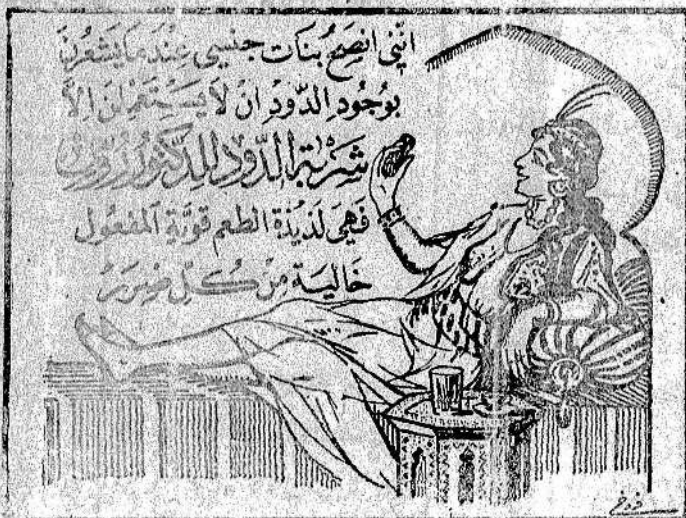 انّني انصح بنات جنسي عندما يشعرن
بوجود الدّود ان لا يستعملن الاّ
شربة الدّود للدكتور
فهي لذيذة الطعم قويّة المفعول
خالية من كل ضرر